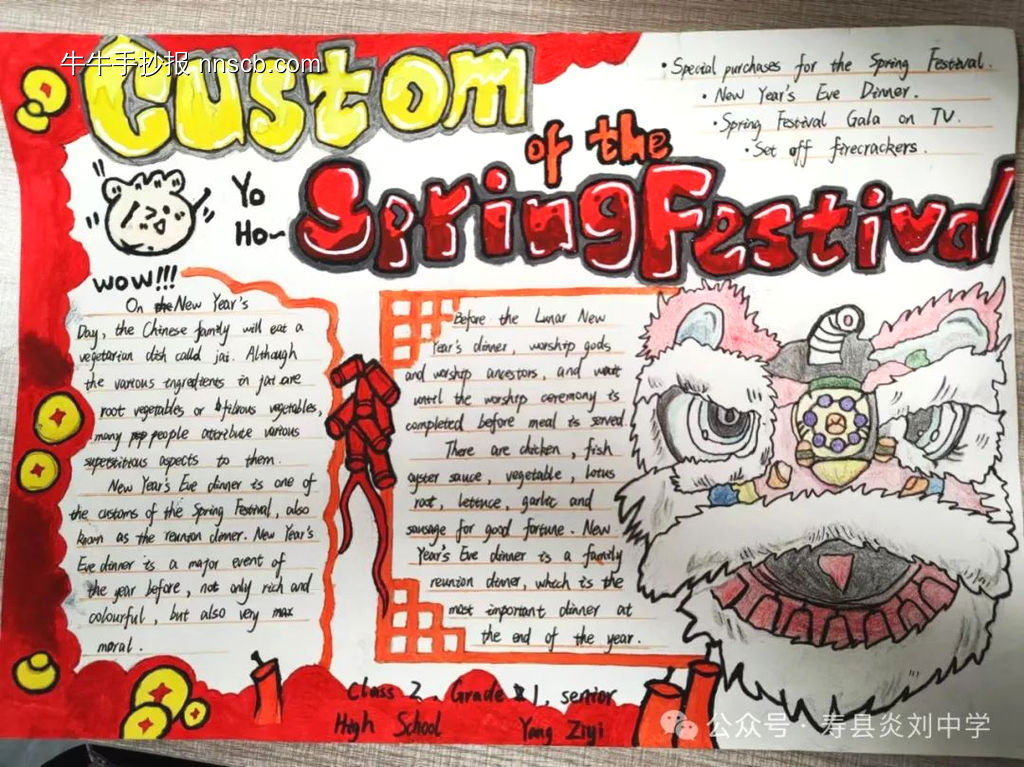 牛牛手抄报 nnscb.com
Custom
of the
Spring Festival
• Special purchases for the Spring Festival.
• New Year's Eve Dinner.
• Spring Festival Gala on TV.
• Set off firecrackers.
Yo
Ho~
WOW!!!
On the New Year's
Day, the Chinese family will eat a
vegetarian dish calld jai. Although
the various ingredients in jai are
root vegetables or fibrous vegetables,
many people attribute various
superstitious aspects to them.
New Year's Eve dinner is one of
the customs of the Spring Festival, also
known as the reunion dinner. New Year's
Eve dinner is a major event of
the year before, not only rich and
colourful, but also very
moral.
Before the Lunar New
Year's dinner, worship gods
and worship ancestors, and wait
until the worship ceremony is
completed before meal is served.
There are chicken, fish
oyster sauce, vegetable, lotus
root, lettuce, garlic and
sausage for good fortune. New
Year's Eve dinner is a family
reunion dinner, which is the
most important dinner at
the end of the year.
Class 2, Grade 1, senior
High School Yang Ziyi
公众号·寿县炎刘中学